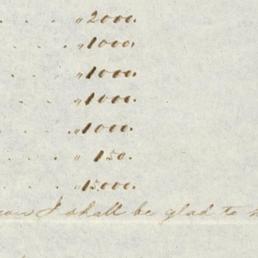 . . . . " 2000.
. . . . " 1000.
. . . . " 1000.
. . . . " 1000.
. . . . " 1000.
. . . " 150.
. . . . " 15000.
I shall be glad to